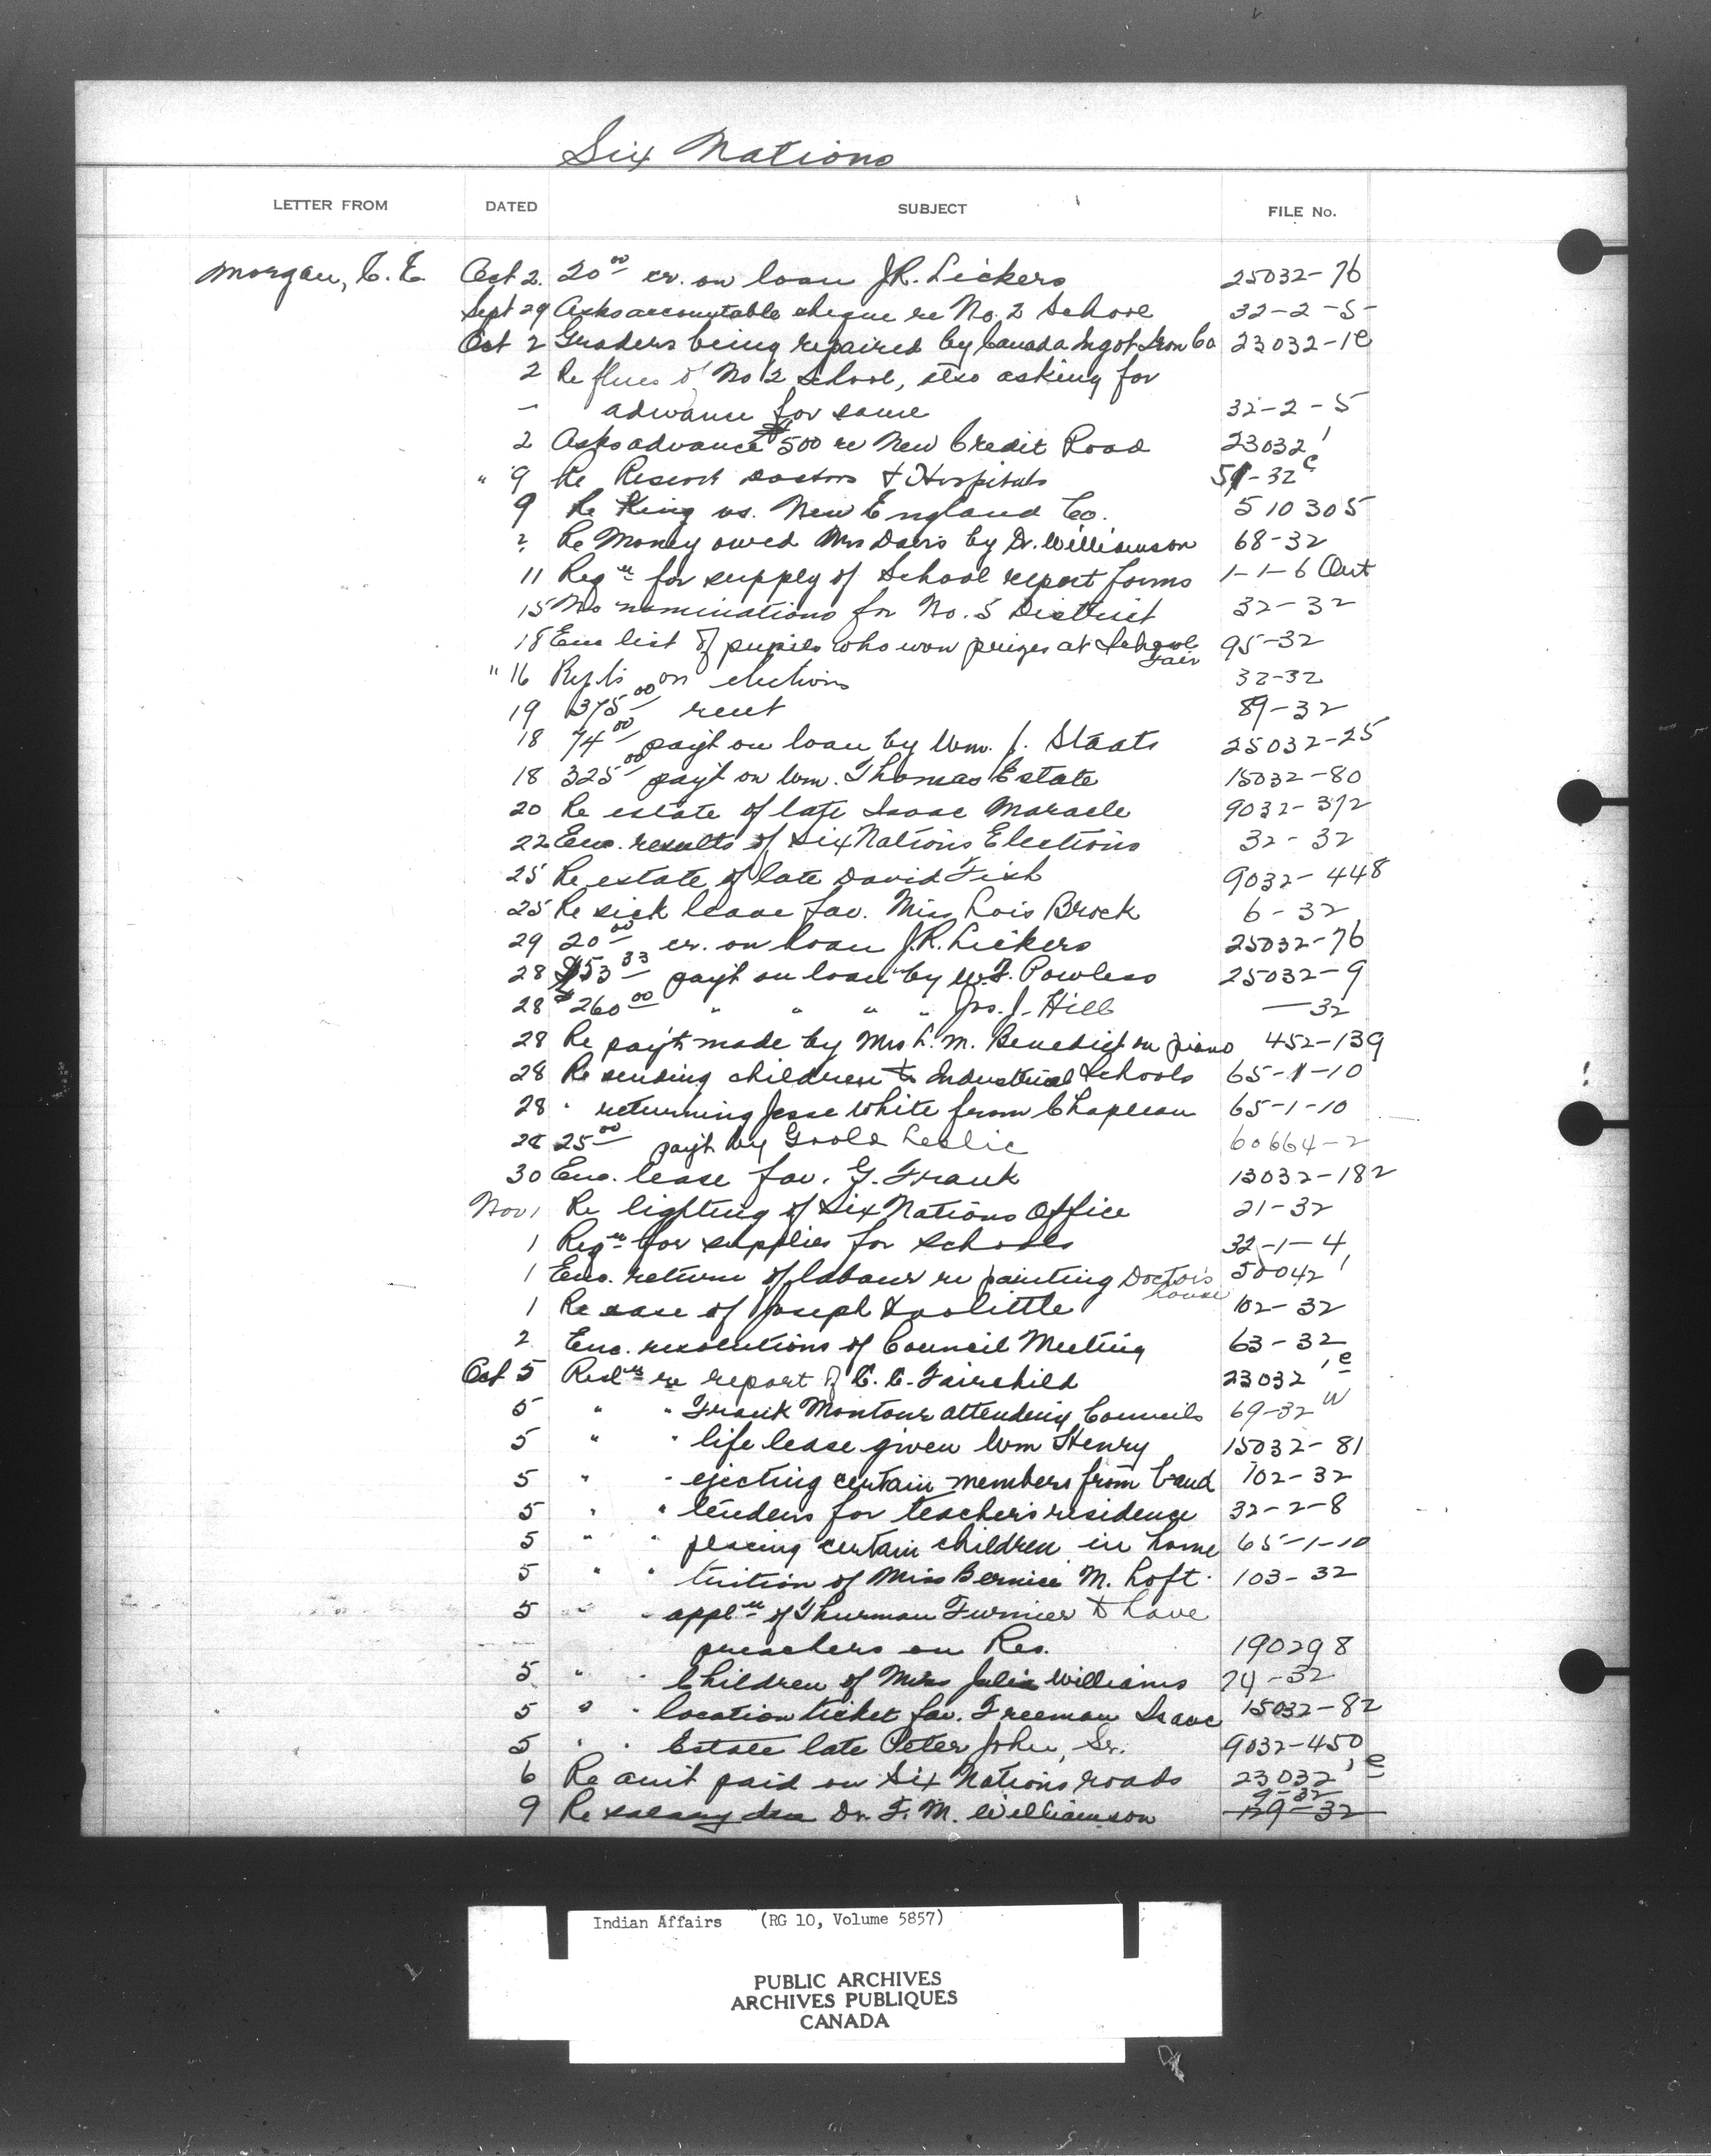 Six Nations
LETTER FROM DATED SUBJECT FILE No.
Morgan, C. E. Oct 2. 20 00 cr. on loan J.R. Lickers 25032-76
Sept 29 Asks accountable cheque re No. 2 School 32-2-5
Oct 2 Graders being repaired by Canada Ingot Iron Co 23032-1e
2 Re flues of No 2 School, also asking for
advance for same 32-2-5
2 Asks advance $500 re New Credit Road 23032 1
" 9 Re Doctors & Hospitals -32 c
9 Re King vs. New England Co. 510305
2 Re Money owed Mrs Davis by Dr. Williamson 68-32
11 Reqn for supply of School report forms 1-1-6 Ont
15 No nominations for No. 5 District 32-32
18 Enc list of pupils who won prizes at School Fair 95-32
" 16 Repts on elections 32-32
19 375 00 rent 89-32
18 74 00 payt on loan by Wm. J. Staats 25032-25
18 325 00 payt on Wm. Thomas Estate 15032-80
20 Re estate of late Isaac Maracle 9032-312
22 Enc. results of Six Nations Elections 32-32
25 Re estate of late David Fish 9032-448
25 Re sick leave fav. Miss Lois Brock 6-32
29 20 00 cr. on loan J.R. Lickers 25032-76
28 $53 33 payt on loan by W.F. Powless 25032-9
28 $260 00 " " " " Jos. J. Hill —32
28 Re payts made by Mrs L. M. Benedict on piano 452-139
28 Re sending children to Industrial Schools 65-1-10
28 " returning Jesse White from Chapleau 65-1-10
28 25 00 payt by Goold Leslie 60664-2
30 Enc. lease fav. G. Frank 13032-182
Nov 1 Re lighting of Six Nations Office 21-32
1 Reqn for supplies for schools 32-1-4
1 Enc. return of labour re painting Doctors house 50042 1
1 Re case of Joseph Doolittle 102-32
2 Enc. resolutions of Council Meeting 63-32
Oct 5 Resln re report of C. C. Fairchild 23032 1e
5 " " Frank Montour attending Councils 69-32 W
5 " " life lease given Wm Henry 15032-81
5 " " ejecting certain members from band 102-32
5 " " tenders for teachers residence 32-2-8
5 " " placing certain children in home 65-1-10
5 " " tuition of Miss Bernice M. Loft 103-32
5 " " appln of Thurman Turnier to have
preachers on Res. 190298
5 " " Children of Mrs Julia Williams 74-32
5 " " location ticket fav. Freeman Isaac 15032-82
5 " " Estate late Peter John, Sr. 9032-450
6 Re amt paid on Six Nations roads 23032 1e
9 Re salary due Dr. F. M. Williamson 9-32 129-32
Indian Affairs (RG 10, Volume 5857)
PUBLIC ARCHIVES
ARCHIVES PUBLIQUES
CANADA